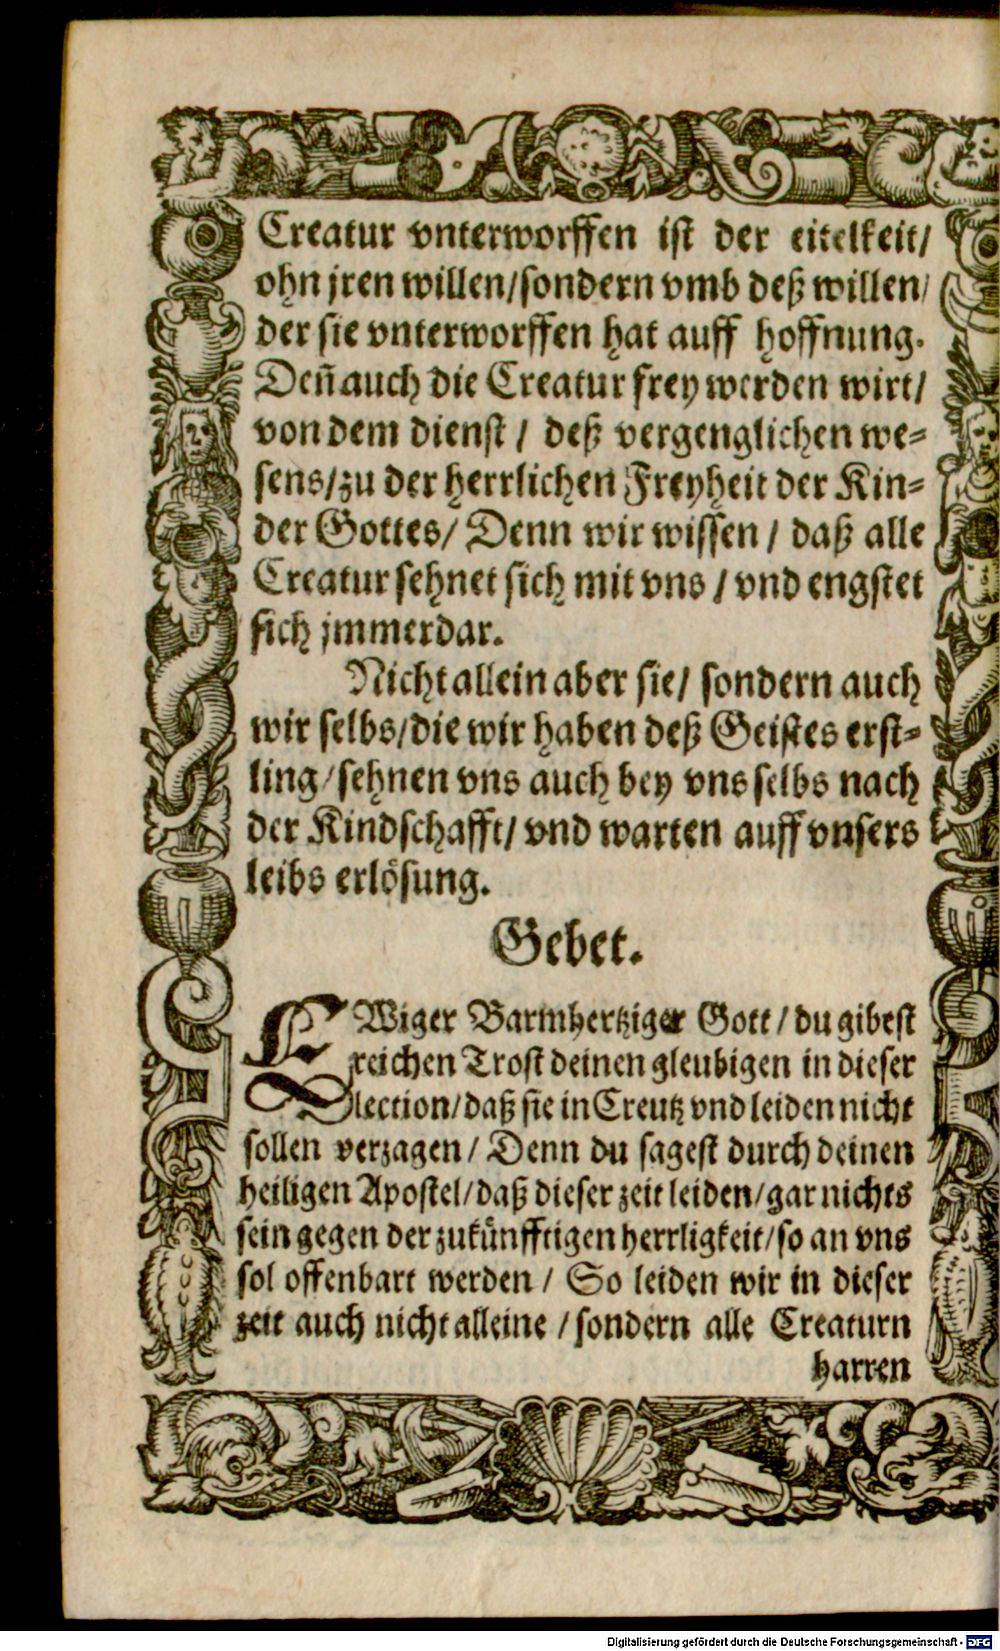 Creatur vnterworffen ist der eitelkeit/
ohn jren willen/sondern vmb deß willen/
der sie vnterworffen hat auff hoffnung.
Deñ auch die Creatur frey werden wirt/
von dem dienst / deß vergenglichen we-
sens/zu der herrlichen Freyheit der Kin-
der Gottes/ Denn wir wissen / daß alle
Creatur sehnet sich mit vns / vnd engstet
sich jmmerdar.
Nicht allein aber sie/ sondern auch
wir selbs/die wir haben deß Geistes erst-
ling/sehnen vns auch bey vns selbs nach
der Kindschafft/ vnd warten auff vnsers
leibs erlösung.
Gebet.
EWiger Barmhertziger Gott / du gibest
reichen Trost deinen gleubigen in dieser
lection/daß sie in Creutz vnd leiden nicht
sollen verzagen / Denn du sagest durch deinen
heiligen Apostel/daß dieser zeit leiden/gar nichts
sein gegen der zukünfftigen herrligkeit/so an vns
sol offenbart werden / So leiden wir in dieser
zeit auch nicht alleine / sondern alle Creaturn
harren
Digitalisierung gefördert durch die Deutsche Forschungsgemeinschaft - DFG